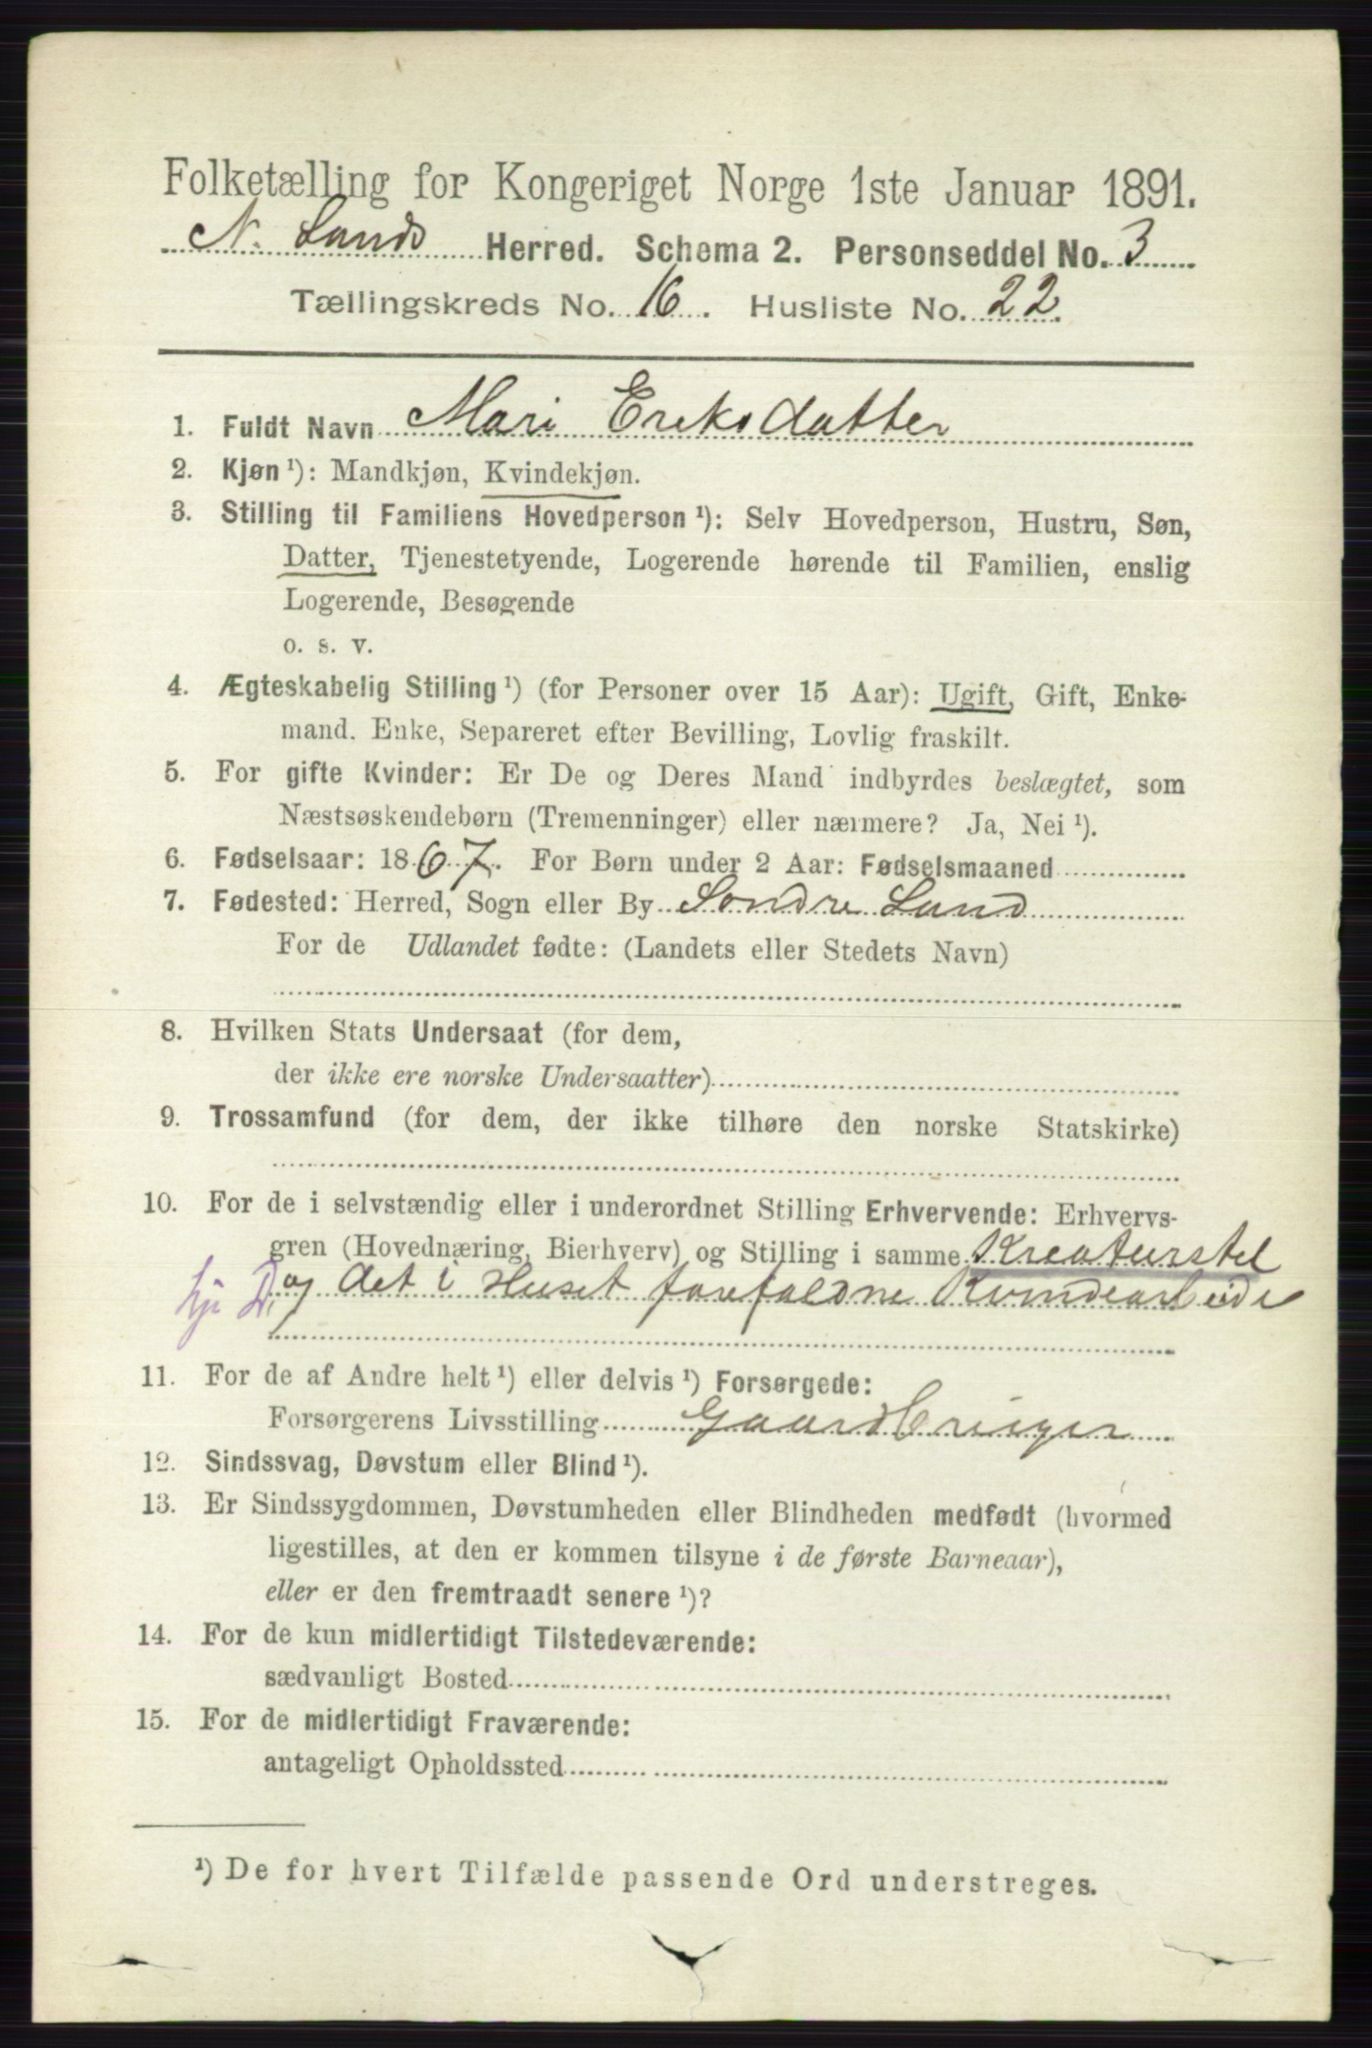 Folketælling for Kongeriget Norge 1ste Januar 1891.
N. Lands Herred. Schema 2. Personseddel No. 3
Tællingskreds No. 16. Husliste No. 22.
1. Fuldt Navn Mari Eriksdatter
2. Kjøn ¹): Mandkjøn, Kvindekjøn.
3. Stilling til Familiens Hovedperson ¹): Selv Hovedperson, Hustru, Søn,
Datter, Tjenestetyende, Logerende hørende til Familien, enslig
Logerende, Besøgende
o. s. v.
4. Ægteskabelig Stilling ¹) (for Personer over 15 Aar): Ugift, Gift, Enke-
mand. Enke, Separeret efter Bevilling, Lovlig fraskilt.
5. For gifte Kvinder: Er De og Deres Mand indbyrdes beslægtet, som
Næstsøskendebørn (Tremenninger) eller nærmere? Ja, Nei ¹).
6. Fødselsaar: 1867. For Børn under 2 Aar: Fødselsmaaned
7. Fødested: Herred, Sogn eller By Søndre Land
For de Udlandet fødte: (Landets eller Stedets Navn)
8. Hvilken Stats Undersaat (for dem,
der ikke ere norske Undersaatter)
9. Trossamfund (for dem, der ikke tilhøre den norske Statskirke)
10. For de i selvstændig eller i underordnet Stilling Erhvervende: Erhvervs-
gren (Hovednæring, Bierhverv) og Stilling i samme Kreaturstel
og det i Huset forefaldne Kvindearbeide
11. For de af Andre helt ¹) eller delvis ¹) Forsørgede:
Forsørgerens Livsstilling Gaardbruger
12. Sindssvag, Døvstum eller Blind ¹).
13. Er Sindssygdommen, Døvstumheden eller Blindheden medfødt (hvormed
ligestilles, at den er kommen tilsyne i de første Barneaar),
eller er den fremtraadt senere ¹)?
14. For de kun midlertidigt Tilstedeværende:
sædvanligt Bosted
15. For de midlertidigt Fraværende:
antageligt Opholdssted
¹) De for hvert Tilfælde passende Ord understreges.